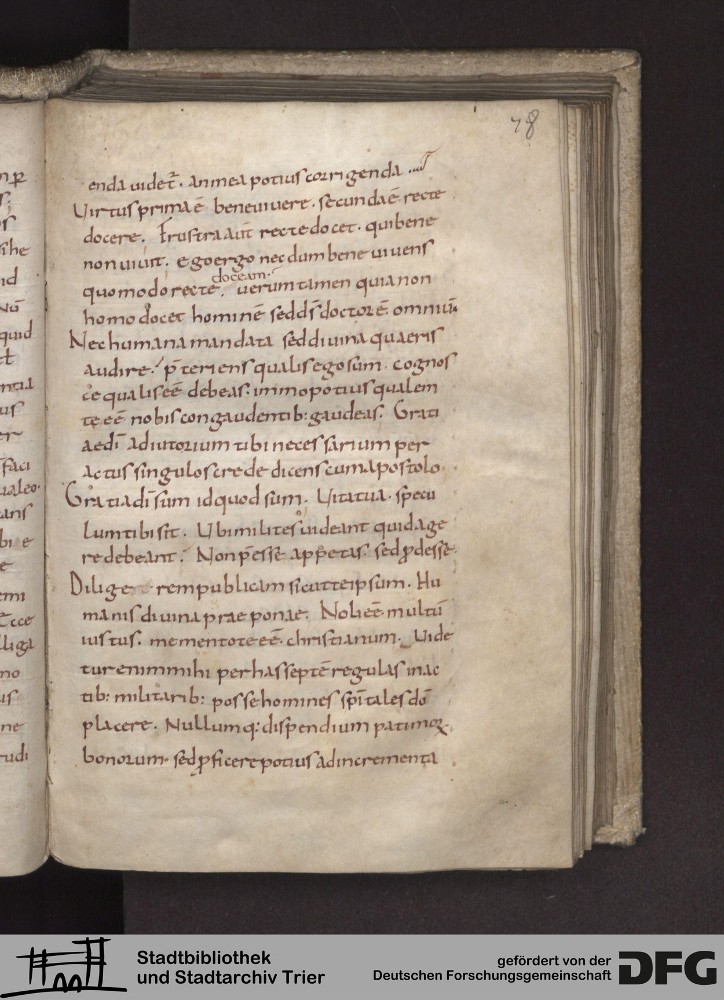 78
enda uidet̄. an mea potius corrigenda
Uirtus prima ē bene uiuere. secunda ē recte
docere. Frustra aut̄ recte docet. qui bene
non uiuit. ego ergo nec dum bene uiuens
doceam
quomodo recte. uerum tamen quia non
homo docet hominē sed ds̄ doctor ē. omniū
Nec humana mandata sed diuina quaeris
audire. p̄teriens qualis ego sum. cognos
ce qualis eē debeas. immo potius qualem
te eē nobis congaudentib: gaudeas. Grati
ae dī adiutorium tibi necessarium per
actus singulos crede dicens cum apostolo
Gratia dī sum id quod sum. Uita tua. specu
lum tibi sit. Ubi milites uideant quid age
re debeant. Non p̄esse appetas. sed ꝓdesse
Dilige rempublicam sicut te ipsum. Hu
manis diuina praepone. Noli eē multū
iustus. memento te eē christianum. Uide
tur enim mihi per has septē regulas in ac
tib: militarib: posse homines sp̄itales dō
placere. Nullumq: dispendium pati
bonorum. sed ꝓficere potius ad incrementa
Stadtbibliothek
und Stadtarchiv Trier
gefördert von der
Deutschen Forschungsgemeinschaft
DFG